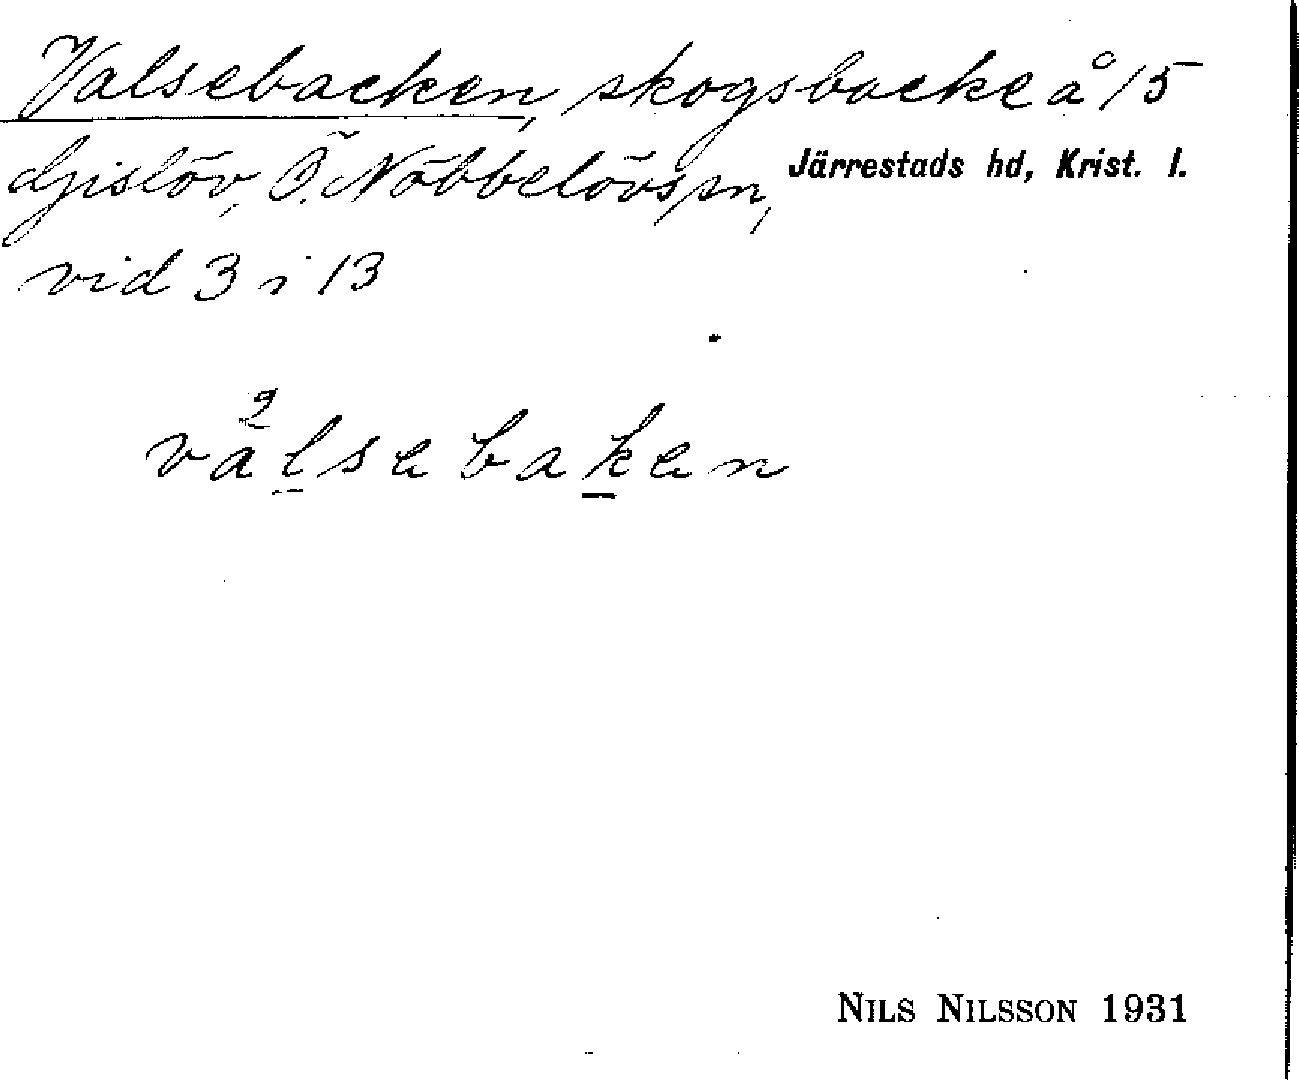 Valsebacken, skogsbacke å 15
Gislöv, Ö. Nöbbelövs sn, Järrestads hd, Krist. l.
vid 3 i 13
valsebaken
NILS NILSSON 1931